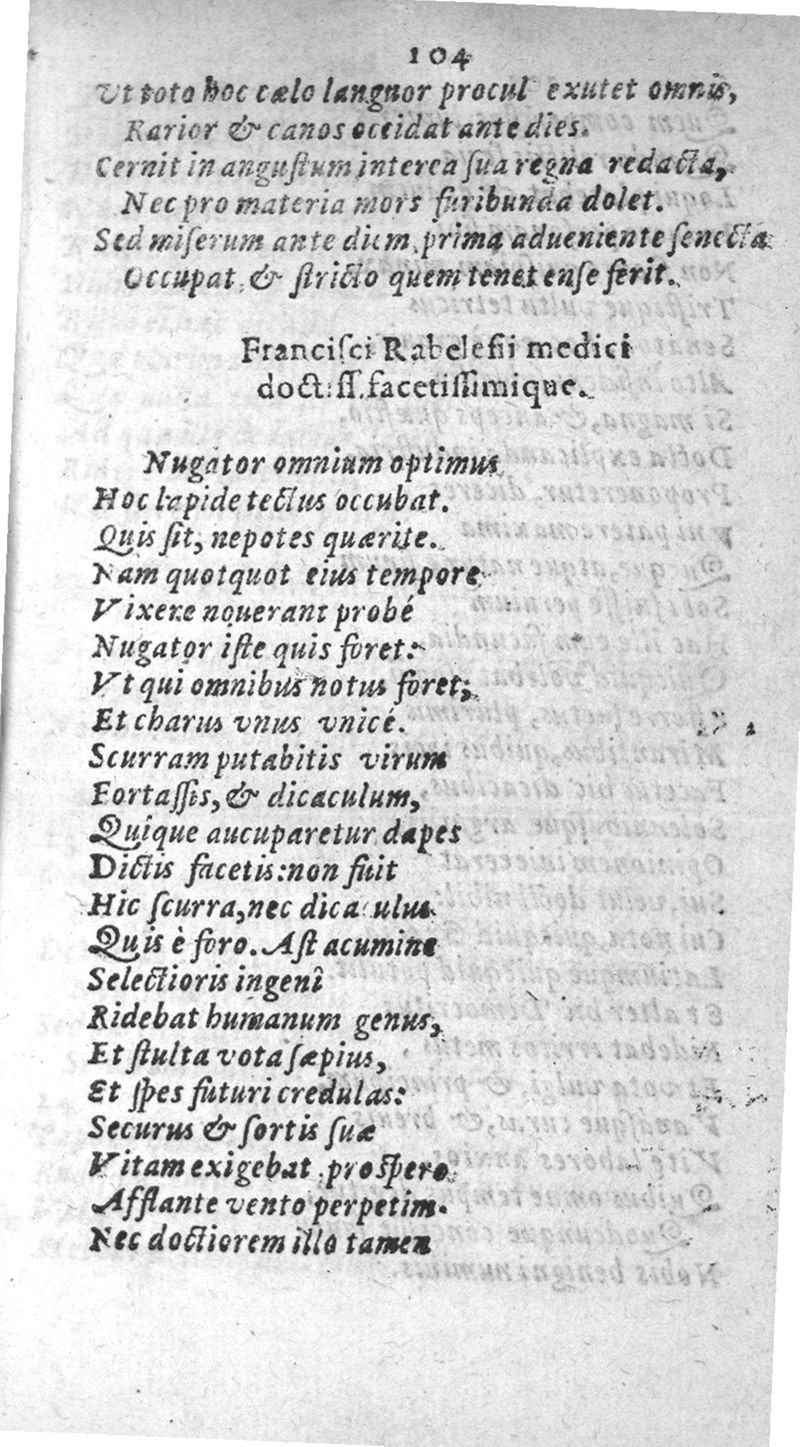 104
Vt toto hoc cælo languor procul exutet omnis,
Rarior & canos occidat ante dies.
Cernit in anguſtum interea ſua regna redacta,
Nec pro materia mors furibunda dolet.
Sed miſerum ante diem prima adueniente ſenecta
Occupat, & ſtricto quem tenet enſe ferit.
Franciſci Rabeleſii medici
doct:ſſ.facetiſſimique.
Nugator omnium optimus
Hoc lapide tectus occubat.
Quis ſit, nepotes quærite.
Nam quotquot eius tempore
Vixere nouerant probé
Nugator iſte quis foret:
Vt qui omnibus notus foret;
Et charus vnus vnicé.
Scurram putabitis virum
Fortaſſis, & dicaculum,
Quique aucuparetur dapes
Dictis facetis: non fuit
Hic ſcurra, nec dicaculus
Quis è foro. Aſt acumine
Selectioris ingenî
Ridebat humanum genus,
Et ſtulta vota ſæpius,
Et ſpes futuri credulas:
Securus & ſortis ſuæ
Vitam exigebat proſpero
Afflante vento perpetim.
Nec doctiorem illo tamen